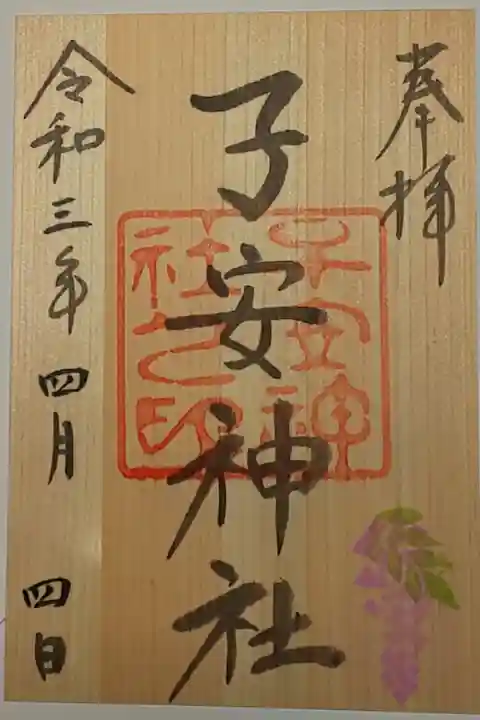 奉拝
子安神社
子安神
社之印
令和三年四月四日